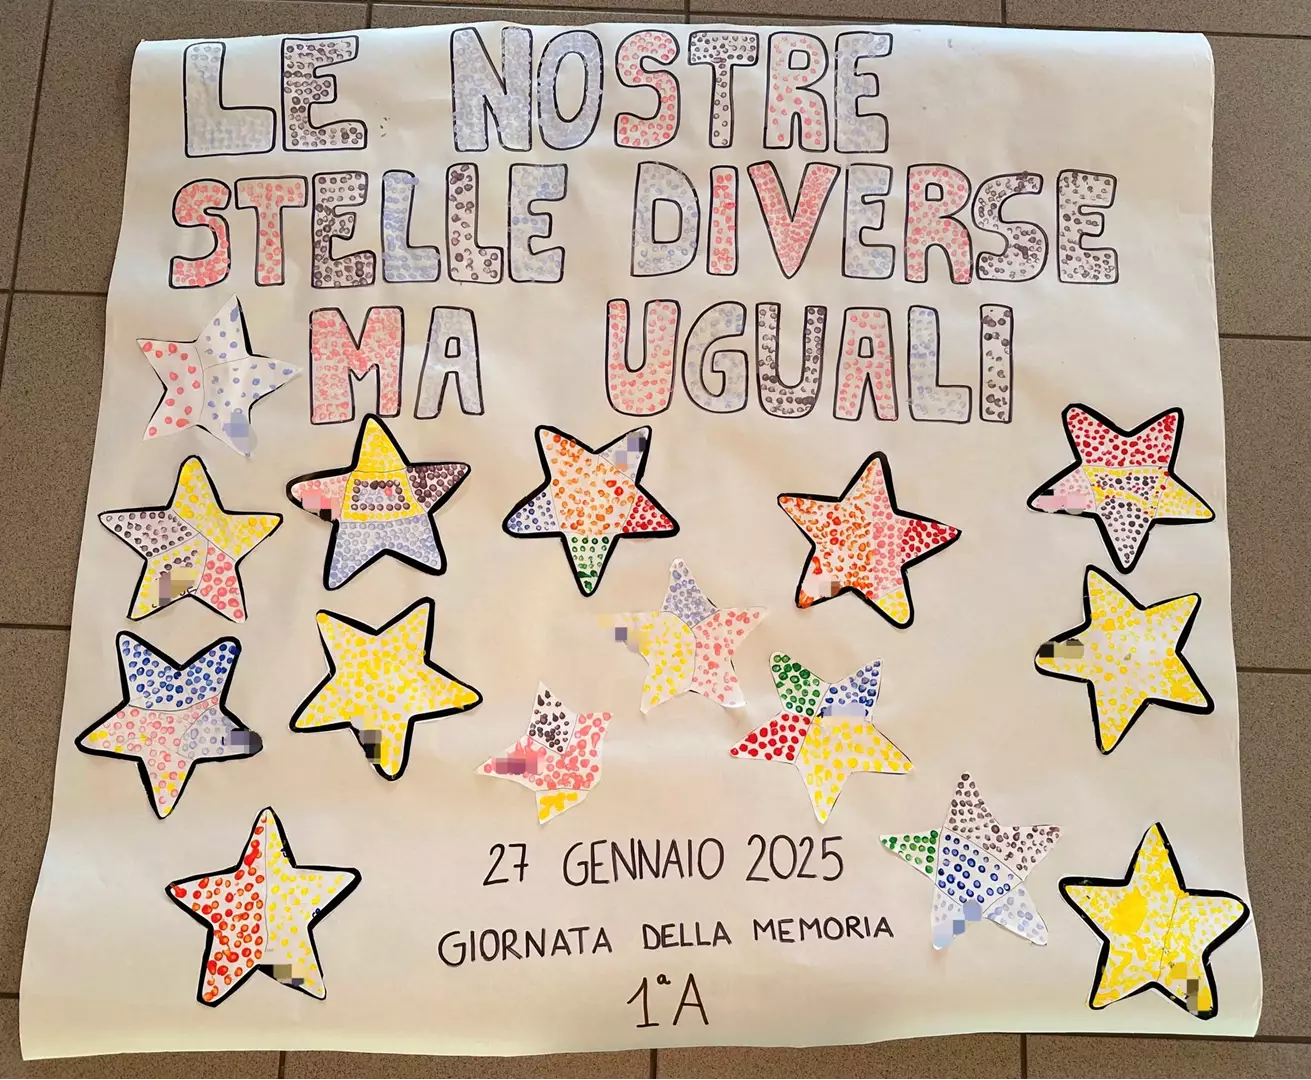 LE NOSTRE
STELLE DIVERSE
MA UGUALI
27 GENNAIO 2025
GIORNATA DELLA MEMORIA
1ª A